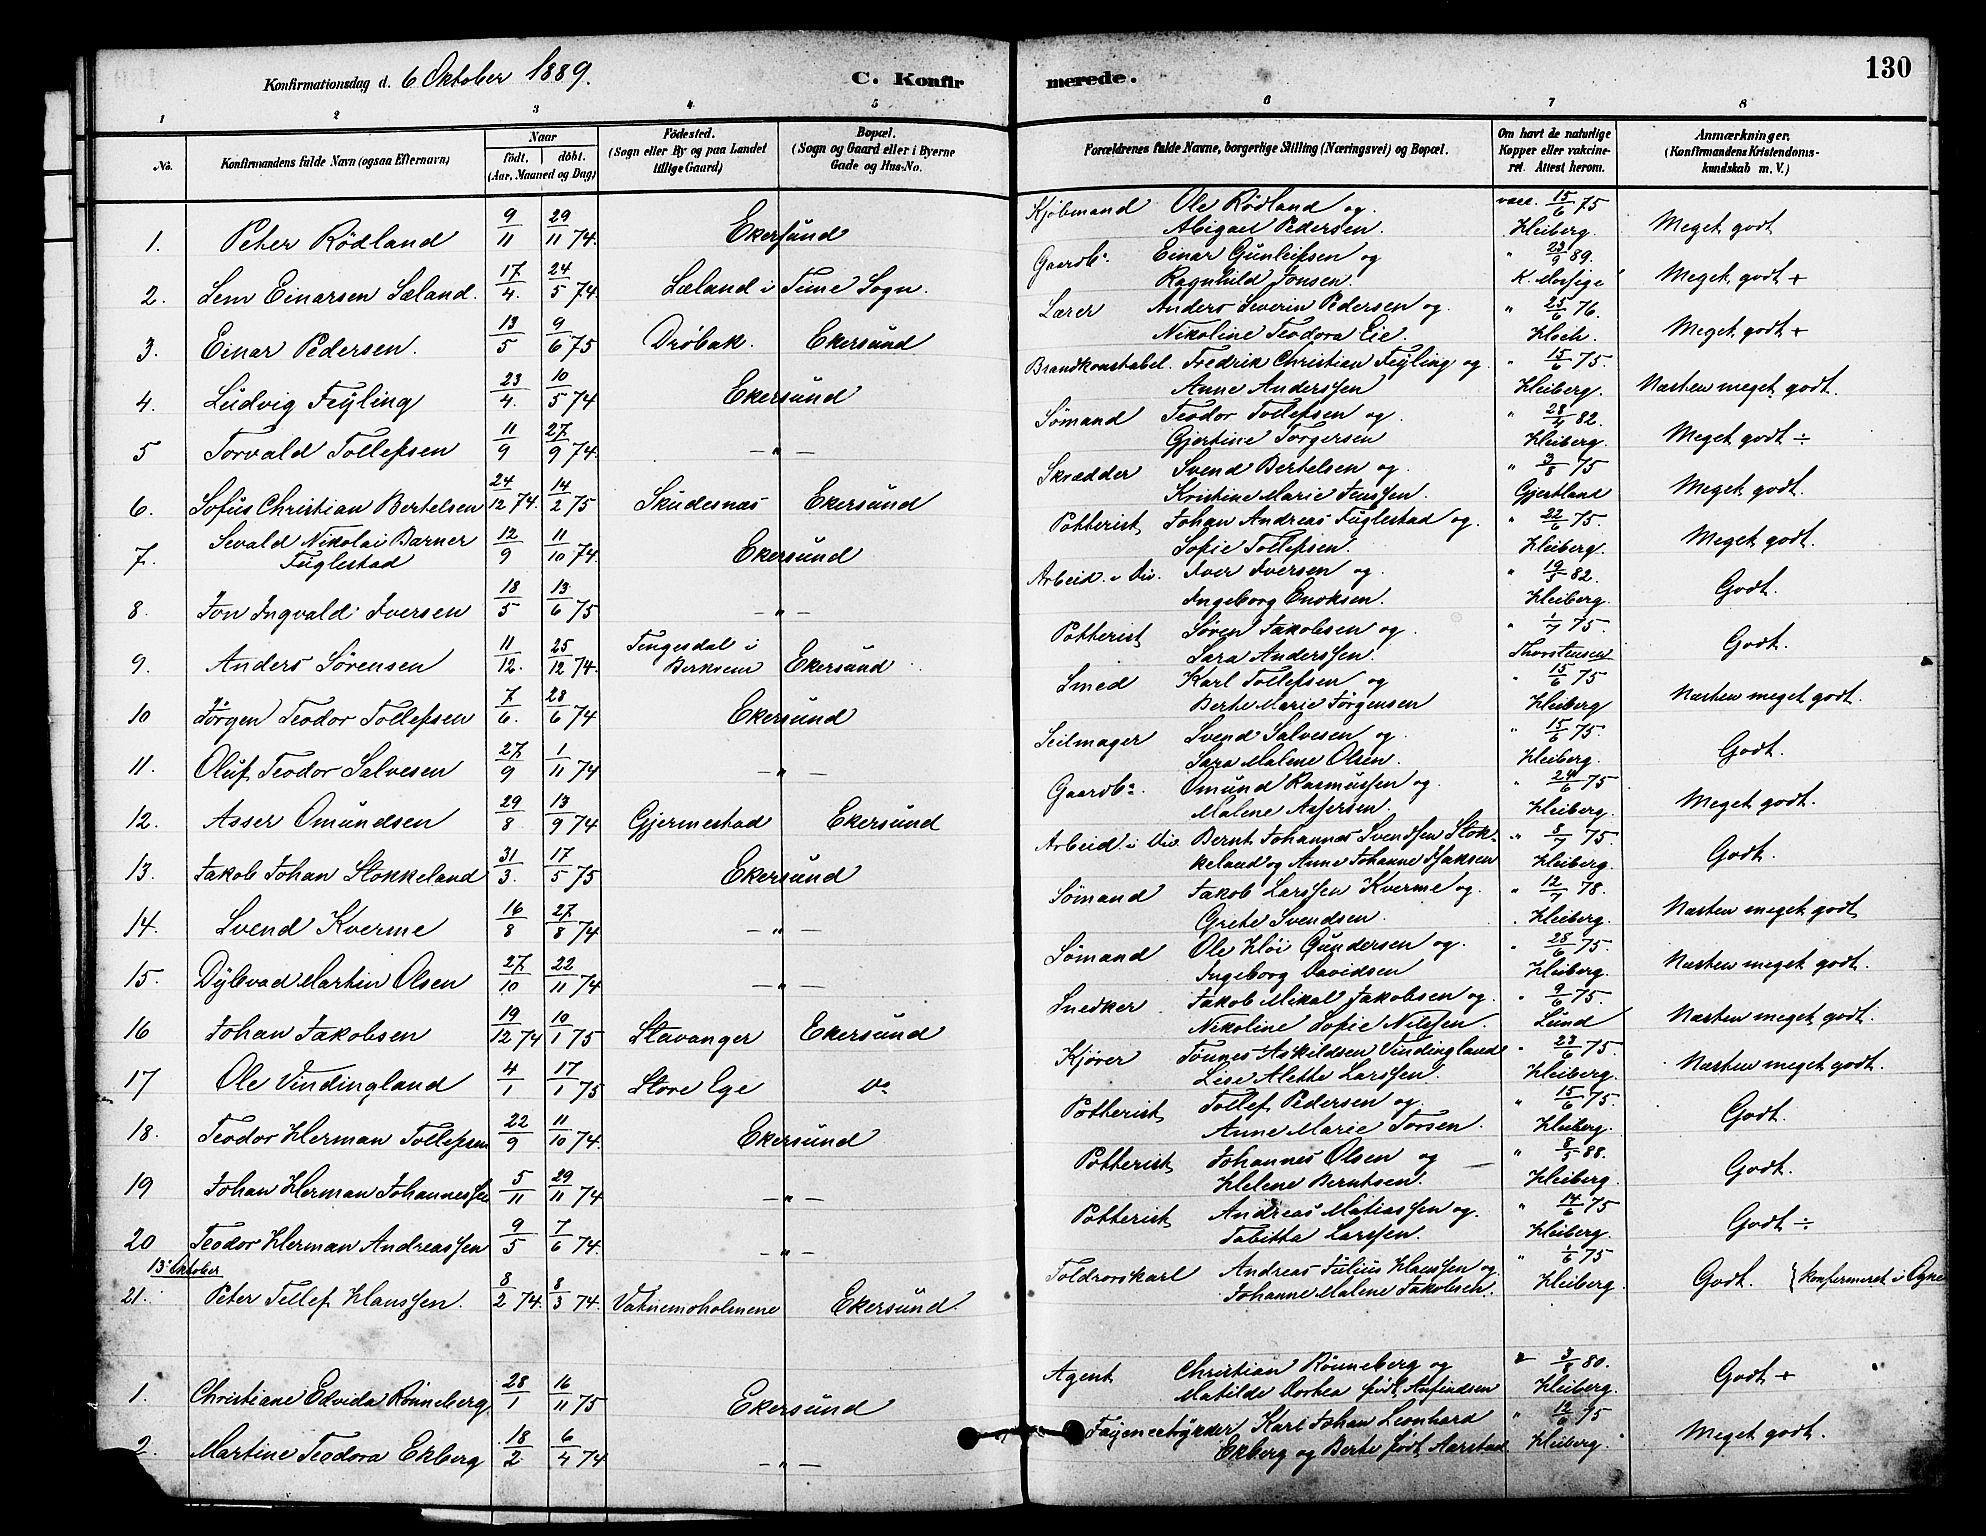 130
Konfirmationsdag d. 6 Oktober 1889.
C. Konfirmerede.
1 2 3 4 5 6 7 8
No.
Konfirmandens fulde Navn (ogsaa Efternavn)
Naar
født. døbt.
(Aar, Maaned og Dag)
Fødested.
(Sogn eller By og paa Landet
tillige Gaard)
Bopæl.
(Sogn og Gaard eller i Byerne
Gade og Hus-No.
Forældrenes fulde Navne, borgerlige Stilling (Næringsvei) og Bopæl.
Om havt de naturlige
Kopper eller vakcine-
ret. Attest herom.
Anmærkninger.
(Konfirmandens Kristendoms-
kundskab m. V.)
1. Peter Rödland 9/11 29/11 74. Ekersund Kjöbmand Ole Rödland og vacc. 15/6 75
Abigael Pedersen. Kleiberg. Meget godt
2. Sem Einarsen Sæland. 17/4. 24/5 74. Sæland i Time Sogn. Gaardbr. Einar Gunleifsen og " 23/9 89.
Ragnhild Jonsen. Meget godt +
3. Einar Pedersen. 13/5 9/6 75 Dröbak. Ekersund Lærer Anders Severin Pedersen og " 25/6 76.
Nikoline Teodora Eie. Kloch. Meget godt +
4. Ludvig Feyling 23/4. 10/5 74 Ekersund Brandkonstabel. Fredrik Christian Feyling og " 15/6 75.
Anne Anderssen Kleiberg. Næsten meget godt.
5 Torvald Tollefsen 11/9 27/9 74. — " — Sömand Teodor Tollefsen og " 28/4 82.
Gjertine Torgersen Kleiberg. Meget godt ÷
6. Sofus Christian Bertelsen 24/12 74. 14/2 75 Skudesnæs Ekersund Skrædder Svend Bertelsen og " 3/8 75
Kristine Marie Jenssen. Gjertland Meget godt.
7. Sevald Nikolai Barner
Fuglestad 12/9 11/10 74. Ekersund Potterist Johan Andreas Fuglestad og " 22/6 75.
Sofie Tollefsen. Kleiberg. Meget godt.
8. Jon Ingvald Iversen 18/5 13/6 75 — " — Arbeid. i Div. Iver Iversen og " 19/5 82.
Ingeborg Enoksen. Kleiberg. Godt.
9. Anders Sörensen 11/12. 25/12 74. Tengesdal i
Berkrem Ekersund Potterist Sören Jakobsen og " 1/7 75.
Sara Anderssen. Thorstensen Godt.
10 Jörgen Teodor Tollefsen 7/6. 28/6 74 Ekersund Smed Karl Tollefsen og " 15/6 75
Berte Marie Jörgensen Kleiberg Næsten meget godt.
11. Oluf Teodor Salvesen 27/9 1/11 74 — " — Seilmager Svend Salvesen og " 15/6 75.
Sara Malene Olsen. Kleiberg. Godt.
12. Asser Omundsen 29/8 13/9 74 Gjermestad Ekersund Gaardbr. Omund Rasmussen og " 24/6 75
Malene Assersen. Kleiberg. Meget godt.
13. Jakob Johan Stokkeland 31/3. 17/5 75 Ekersund Arbeid. i Div. Bernt Johannes Svendsen Stok- " 8/7 75.
keland og Anne Johanne Isaksen Kleiberg. Godt.
14. Svend Kverme 16/8 27/8 74 — " — Sömand Jakob Larssen Kverme og " 12/7 78.
Grete Svendsen. Kleiberg. Næsten meget godt
15. Dybvad Martin Olsen 27/10 22/11 74 — " — Sömand Ole Klöi Gundersen og " 28/6 75.
Ingeborg Davidsen Kleiberg. Næsten meget godt.
16 Johan Jakobsen 19/12 74 10/1 75 Stavanger Ekersund Snedker Jakob Mikal Jakobsen og " 9/6 75.
Nikoline Sofie Nilssen. Lund Næsten meget godt.
17 Ole Vindingland 4/1 17/1 75 Store Ege do Kjörer Tönnes Askildsen Vindingland " 23/6 75.
Lise Alette Larssen. Kleiberg. Næsten meget godt.
18. Teodor Herman Tollefsen 22/9 11/10 74. Ekersund Potterist Tollef Pedersen og " 15/6 75.
Anne Marie Torsen. Kleiberg. Godt.
19 Johan Herman Johannessen 5/11 29/11 74 — " — Potterist Johannes Olsen og " 8/5 88.
Helene Berntsen. Kleiberg. Godt.
20 Teodor Herman Andreassen 9/5 7/6 74. — " — Potterist Andreas Matiassen og " 14/6 75
Tabitta Larssen. Kleiberg. Godt ÷
13 Oktober
21. Peter Tollef Klaussen. 8/2 74. 8/3 74. Vatnemoholmene Ekersund Toldrorskarl Andreas Julius Klaussen og " 1/6 75
Johanne Malene Jakobsen. Kleiberg. Godt. { Konfirmeret i Ogne
1. Christiane Edvida Rönneberg 28/1 16/11 75 Ekersund Agent Christian Rönneberg og " 3/8 80.
Matilde Dorthea född Anfindsen Kleiberg. Godt +
2. Martine Teodora Ekberg 18/2 6/4 74 — " — Fajencetrykker Karl Johan Leonhard " 12/6 75
Ekberg og Berte född Aarstad Kleiberg. Meget godt.